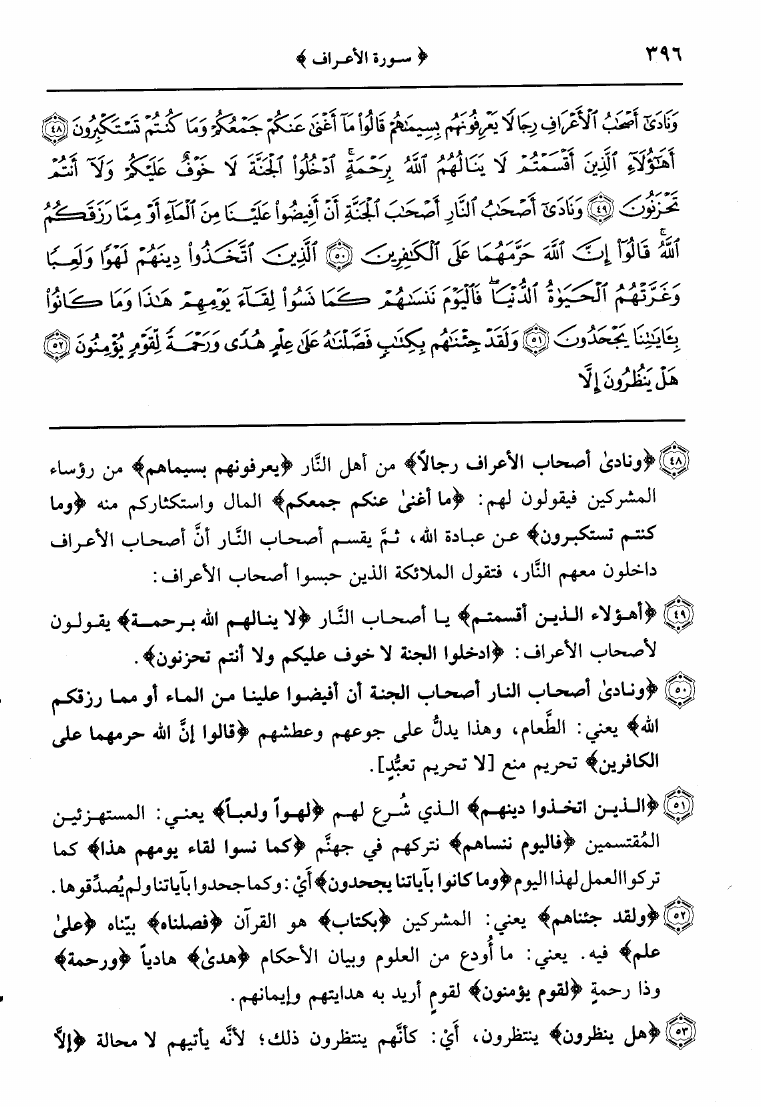 ٣٩٦ ﴿ سورة الأعراف ﴾
وَنَادَىٰٓ أَصْحَٰبُ ٱلْأَعْرَافِ رِجَالًا يَعْرِفُونَهُم بِسِيمَىٰهُمْ قَالُوا۟ مَآ أَغْنَىٰ عَنكُمْ جَمْعُكُمْ وَمَا كُنتُمْ تَسْتَكْبِرُونَ ﴿٤٨﴾
أَهَٰٓؤُلَآءِ ٱلَّذِينَ أَقْسَمْتُمْ لَا يَنَالُهُمُ ٱللَّهُ بِرَحْمَةٍ ۚ ٱدْخُلُوا۟ ٱلْجَنَّةَ لَا خَوْفٌ عَلَيْكُمْ وَلَآ أَنتُمْ
تَحْزَنُونَ ﴿٤٩﴾ وَنَادَىٰٓ أَصْحَٰبُ ٱلنَّارِ أَصْحَٰبَ ٱلْجَنَّةِ أَنْ أَفِيضُوا۟ عَلَيْنَا مِنَ ٱلْمَآءِ أَوْ مِمَّا رَزَقَكُمُ
ٱللَّهُ ۚ قَالُوٓا۟ إِنَّ ٱللَّهَ حَرَّمَهُمَا عَلَى ٱلْكَٰفِرِينَ ﴿٥٠﴾ ٱلَّذِينَ ٱتَّخَذُوا۟ دِينَهُمْ لَهْوًا وَلَعِبًا
وَغَرَّتْهُمُ ٱلْحَيَوٰةُ ٱلدُّنْيَا ۚ فَٱلْيَوْمَ نَنسَىٰهُمْ كَمَا نَسُوا۟ لِقَآءَ يَوْمِهِمْ هَٰذَا وَمَا كَانُوا۟
بِـَٔايَٰتِنَا يَجْحَدُونَ ﴿٥١﴾ وَلَقَدْ جِئْنَٰهُم بِكِتَٰبٍ فَصَّلْنَٰهُ عَلَىٰ عِلْمٍ هُدًى وَرَحْمَةً لِّقَوْمٍ يُؤْمِنُونَ ﴿٥٢﴾
هَلْ يَنظُرُونَ إِلَّا
﴿٤٨﴾ ﴿ونادىٰ أصحاب الأعراف رجالاً﴾ من أهل النَّار ﴿يعرفونهم بسيماهم﴾ من رؤساء
المشركين فيقولون لهم: ﴿ما أغنىٰ عنكم جمعكم﴾ المال واستكثاركم منه ﴿وما
كنتم تستكبرون﴾ عن عبادة الله، ثمَّ يقسم أصحاب النَّار أنَّ أصحاب الأعراف
داخلون معهم النَّار، فتقول الملائكة الذين حبسوا أصحاب الأعراف:
﴿٤٩﴾ ﴿أهؤلاء الذين أقسمتم﴾ يا أصحاب النَّار ﴿لا ينالهم الله برحمة﴾ يقولون
لأصحاب الأعراف: ﴿ادخلوا الجنة لا خوف عليكم ولا أنتم تحزنون﴾.
﴿٥٠﴾ ﴿ونادىٰ أصحاب النار أصحاب الجنة أن أفيضوا علينا من الماء أو مما رزقكم
الله﴾ يعني: الطَّعام، وهذا يدلُّ على جوعهم وعطشهم ﴿قالوا إنَّ الله حرمهما على
الكافرين﴾ تحريم منع [لا تحريم تعبُّدٍ].
﴿٥١﴾ ﴿الذين اتخذوا دينهم﴾ الذي شُرع لهم ﴿لهواً ولعباً﴾ يعني: المستهزئين
المُقتسمين ﴿فاليوم ننساهم﴾ نتركهم في جهنَّم ﴿كما نسوا لقاء يومهم هذا﴾ كما
تركوا العمل لهذا اليوم ﴿وما كانوا بآياتنا يجحدون﴾ أَيْ: وكما جحدوا بآياتنا ولم يُصدِّقوها.
﴿٥٢﴾ ﴿ولقد جئناهم﴾ يعني: المشركين ﴿بكتاب﴾ هو القرآن ﴿فصلناه﴾ بيّناه ﴿علىٰ
علم﴾ فيه. يعني: ما أُودع من العلوم وبيان الأحكام ﴿هدىٰ﴾ هادياً ﴿ورحمة﴾
وذا رحمةٍ ﴿لقوم يؤمنون﴾ لقومٍ أريد به هدايتهم وإيمانهم.
﴿٥٣﴾ ﴿هل ينظرون﴾ ينتظرون، أَيْ: كأنَّهم ينتظرون ذلك؛ لأنَّه يأتيهم لا محالة ﴿إلاَّ